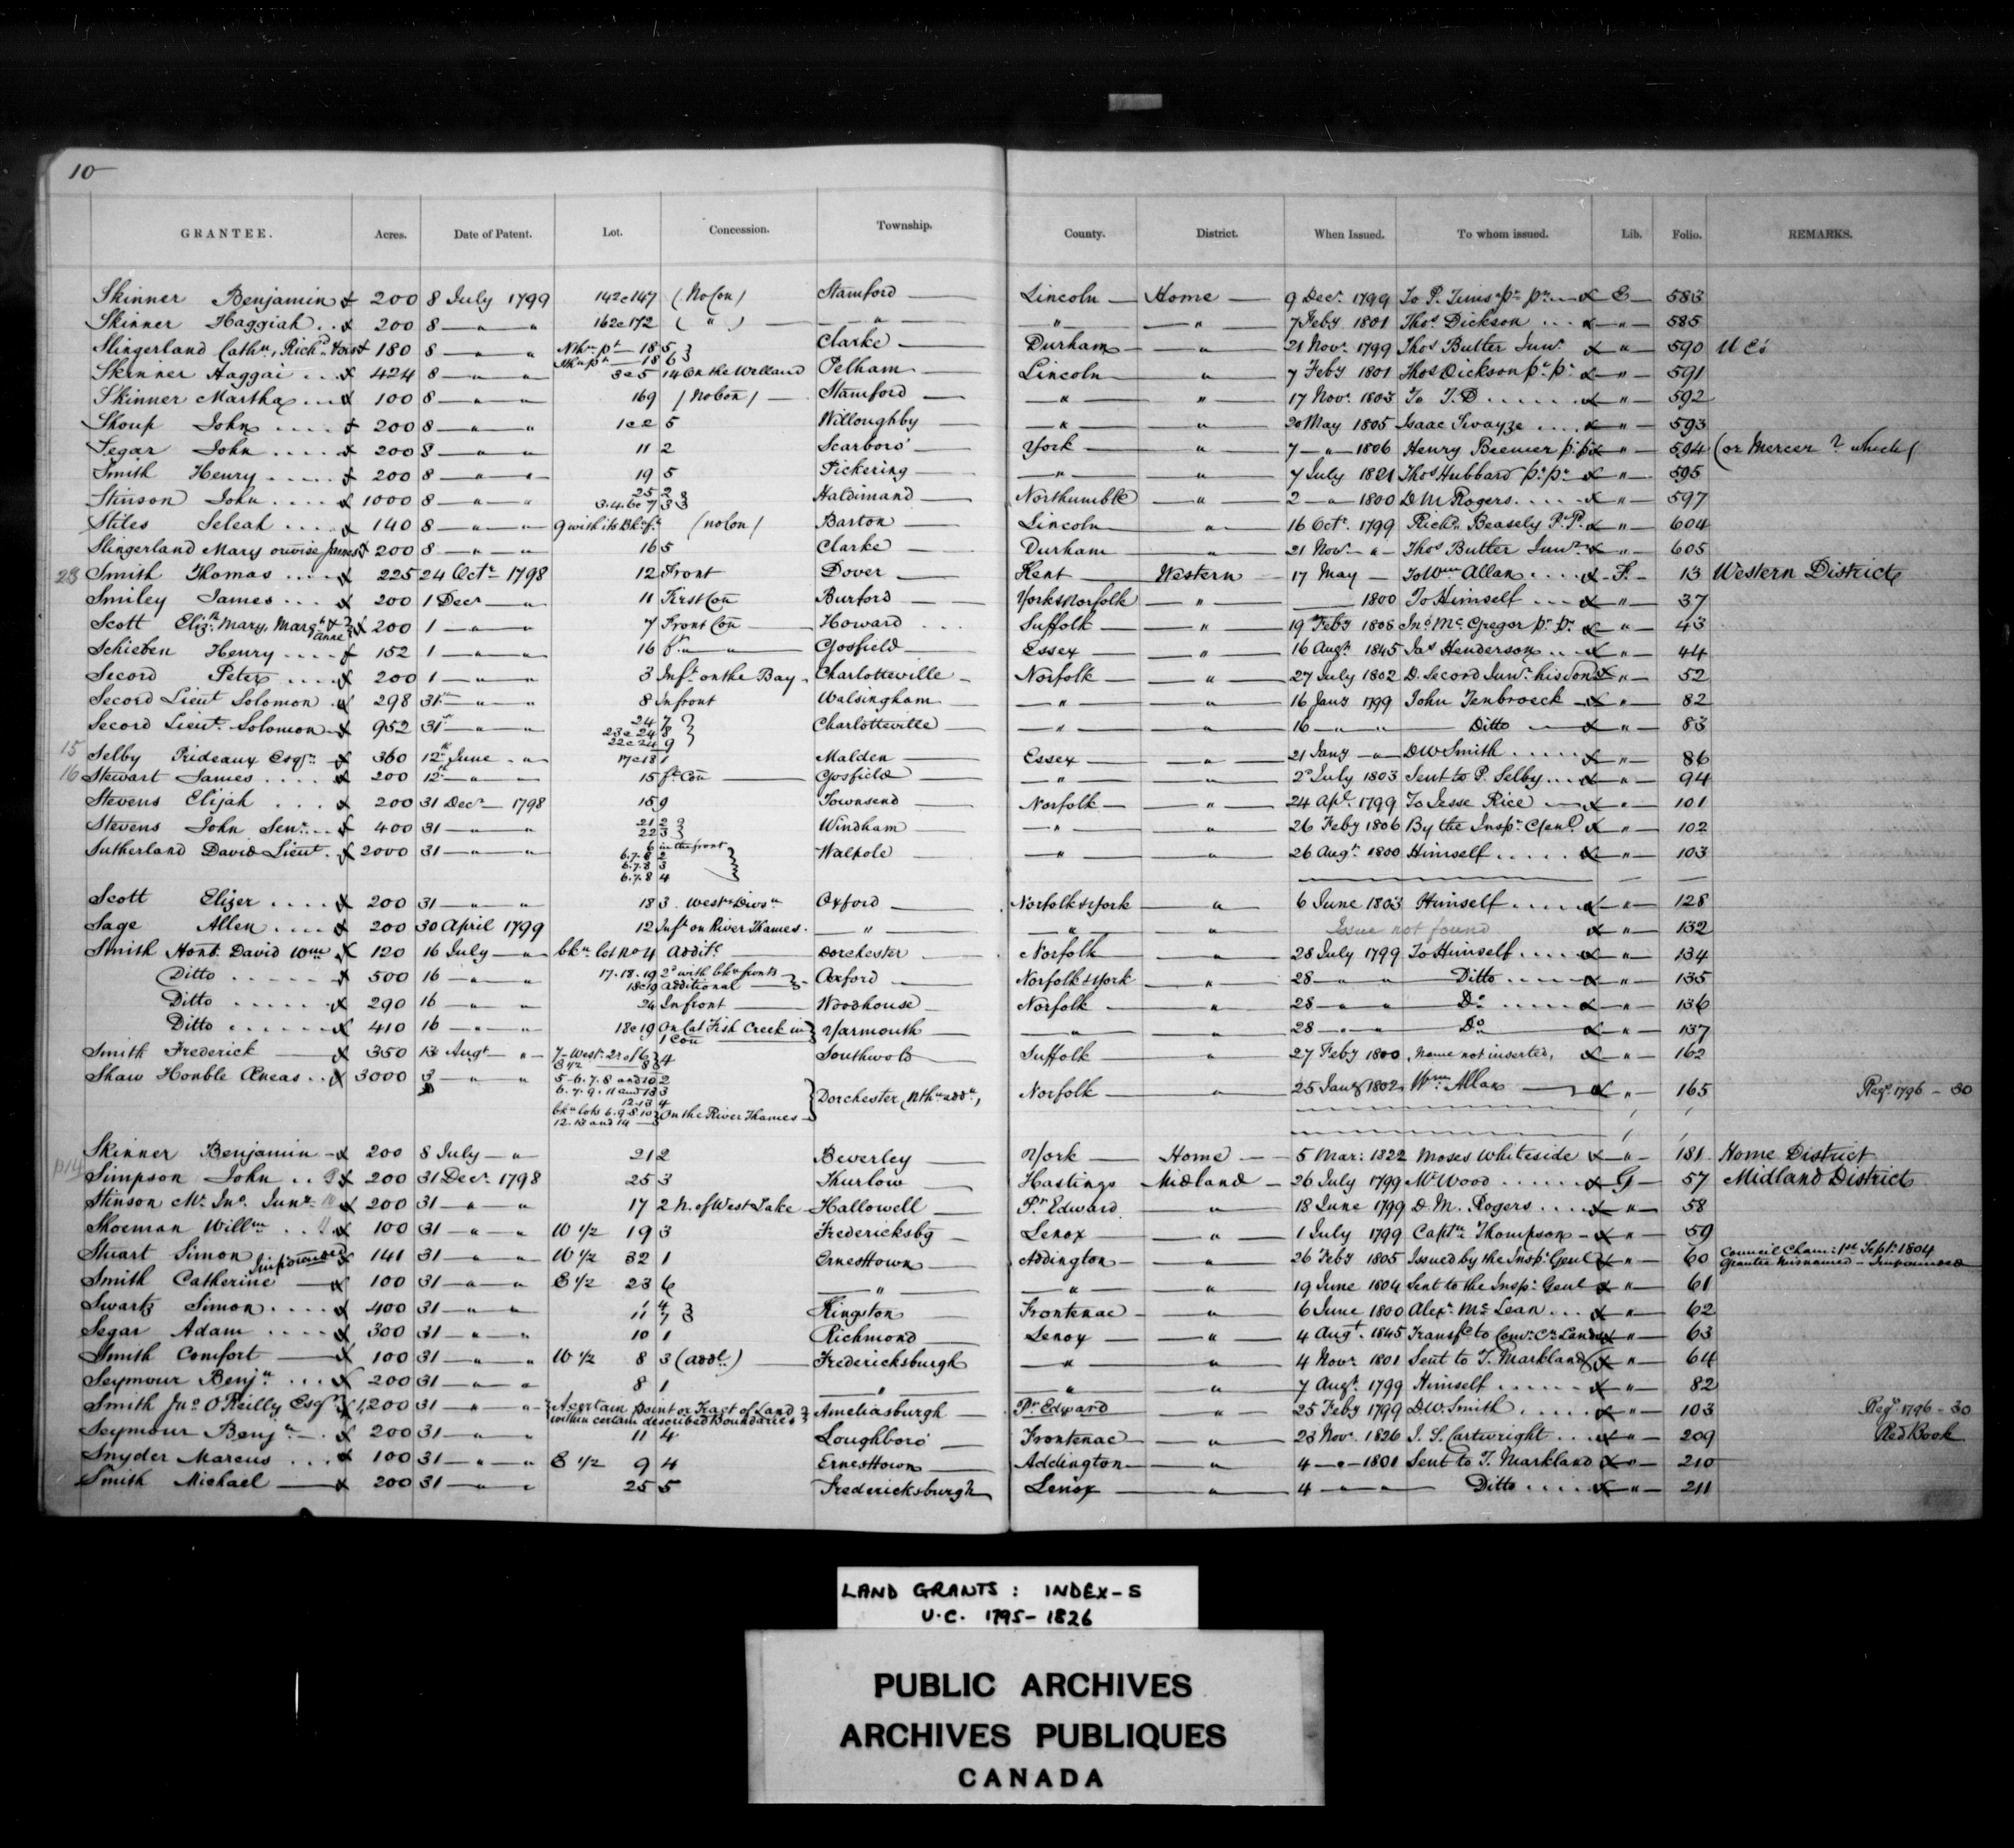 10
GRANTEE. Acres. Date of Patent. Lot. Concession. Township. County. District. When Issued. To whom issued. Lib. Folio. REMARKS.
Skinner Benjamin 200 8 July 1799 142 & 147 (No Con) Stamford Lincoln Home 9 Decr. 1799 To P. pr. pr. E 583
Skinner Haggiah 200 8 " " 162 & 172 ( " ) " " " 7 Feby 1801 Thos. Dickson " 585
Slingerland Cathn, Richd 180 8 " " Nthn pt 18 5 Sthn pt 18 6 Clarke Durham " 21 Novr. 1799 Thos Butler Junr. " 590 U Es
Skinner Haggai 424 8 " " 3 & 5 14 On the Welland Pelham Lincoln " 7 Feby 1801 Thos Dickson pr. pr. " 591
Skinner Martha 100 8 " " 169 (No Con) Stamford " " 17 Novr. 1803 To T. D " 592
Shoup John 200 8 " " 1 & 2 5 Willoughby " " 20 May 1805 Isaac Swayze " 593
Segar John 200 8 " " 11 2 Scarboro' York " 7 " 1806 Henry Beemer pr. pr. " 594 (or Mercer ? which (
Smith Henry 200 8 " " 19 5 Pickering " " 7 July 1821 Thos Hubbard pr. pr. " 595
Stinson John 1000 8 " " 25 2 3.4.6 & 7 3 Haldimand Northumbld " 2 " 1800 D M Rogers " 597
Stiles Seleah 140 8 " " 9 with its Bkn. ft. (no Con) Barton Lincoln " 16 Octr. 1799 Richd. Beasely P. P. " 604
Slingerland Mary orwise James 200 8 " " 16 5 Clarke Durham " 21 Novr. " Thos Butler Junr. " 605
23 Smith Thomas 225 24 Octr 1798 12 Front Dover Kent Western 17 May To Wm Allan F. 13 Western District
Smiley James 200 1 Decr " 11 First Con Burford York & Norfolk " 1800 To Himself " 37
Scott Elizth, Mary, Margt & Anne 200 1 " " 7 Front Con Howard Suffolk " 19 Feby 1808 Jno. Mc Gregor pr. pr. " 43
Schieben Henry 152 1 " " 16 fr. " " Gosfield Essex " 16 Augt. 1845 Jas Henderson " 44
Secord Peter 200 1 " " 3 In ft. on the Bay Charlotteville Norfolk " 27 July 1802 D. Secord Junr. his Son " 52
Secord Lieut Solomon 298 31st " " 8 In front Walsingham " " 16 Jany 1799 John Tenbroeck " 82
Secord Lieut. Solomon 952 31st " " 24 7 23 & 24 8 22 & 24 9 Charlotteville " " 16 " " Ditto " 83
15 Selby Prideaux Esqr. 360 12th June " 17 & 18 1 Malden Essex " 21 Jany " D W Smith " 86
16 Stewart James 200 12th " " 15 ft. Con Gosfield " " 2d July 1803 Sent to P. Selby " 94
Stevens Elijah 200 31 Decr 1798 15 9 Townsend Norfolk " 24 Apl. 1799 To Jesse Rice " 101
Stevens John Senr. 400 31 " " 21 2 22 3 Windham " " 26 Feby 1806 By the Inspr. Genl. " 102
Sutherland David Lieut. 2000 31 " " 6 in the front 6.7.8 2 6.7.8 3 6.7.8 4 Walpole " " 26 Augt. 1800 Himself " 103
Scott Elizer 200 31 " " 18 3 westn Divsn Oxford Norfolk & York " 6 June 1803 Himself " 128
Sage Allen 200 30 April 1799 12 In ft. on River Thames " " " Issue not found " 132
Smith Honb. David Wm 120 16 July " bkn lot No 4 Additl. Dorchester Norfolk " 28 July 1799 To Himself " 134
Ditto 500 16 " " 17.18.19 2d with bkn fronts 18 & 19 additional Oxford Norfolk & York " 28 " " Ditto " 135
Ditto 290 16 " " 24 In front Woodhouse Norfolk " 28 " " Do. " 136
Ditto 410 16 " " 18 & 19 On Cat Fish Creek in 1 Con Yarmouth " " 28 " " Do. " 137
Smith Frederick 350 13 Augt " 7 West. 2 of 6 4 Southwold Suffolk " 27 Feby 1800 , name not inserted, " 162
Shaw Honble Æneas 3000 3 " " 5-6.7.8 and 10 2 6.7.9.11 and 13 3 12.13 4 bkn lots 6.9.8.10 12.13 and 14 On the River Thames Dorchester (Nthn addn, Norfolk " 25 Jany 1802 Wm Allan " 165 Regr. 1796 - 30
Skinner Benjamin 200 8 July " 21 2 Beverley York Home 5 Mar: 1822 Moses Whiteside " 181 Home District
p14 Simpson John 200 31 Decr. 1798 25 3 Thurlow Hastings Midland 26 July 1799 Mr Wood G 57 Midland District
Stinson Mr. Jno. Junr. 200 31 " " 17 2 N. of West Lake Hallowell Pr. Edward " 18 June 1799 D. M. Rogers " 58
Shoeman Willm 100 31 " " W 1/2 19 3 Fredericksbg Lenox " 1 July 1799 Captn Thompson " 59
Stuart Simon Impounded 141 31 " " W 1/2 32 1 Ernesttown Addington " 26 Feby 1805 Issued by the Inspr. Genl " 60 Council Cham: 1st Septr. 1804 Grantee misnamed - Impounded
Smith Catherine 100 31 " " E 1/2 23 6 " " " 19 June 1804 Sent to the Inspr. Genl " 61
Swartz Simon 400 31 " " 1 4 11 7 Kingston Frontenac " 6 June 1800 Alexr. Mc Lean " 62
Segar Adam 300 31 " " 10 1 Richmond Lenox " 4 Augt. 1845 Transfd to Comr. Cn Lands " 63
Smith Comfort 100 31 " " W 1/2 8 3 (addl.) Fredericksburgh " " 4 Novr. 1801 Sent to T. Markland " 64
Seymour Benjn 200 31 " " 8 1 " " " 7 Augt. 1799 Himself " 82
Smith Jno. O'Reilly Esqr. 1,200 31 " " A certain point or Tract of Land within certain described Boundaries Ameliasburgh Pr. Edward " 25 Feby 1799 D. W. Smith " 103 Regr. 1796 - 30
Seymour Benjn 200 31 " " 11 4 Loughboro' Frontenac " 23 Novr. 1826 J. S. Cartwright " 209 Red Book
Snyder Marcus 100 31 " " E 1/2 9 4 Ernesttown Addington " 4 " 1801 Sent to T. Markland " 210
Smith Michael 200 31 " " 25 5 Fredericksburgh Lenox " 4 " " Ditto " 211
LAND GRANTS: INDEX-S
U.C. 1795-1826
PUBLIC ARCHIVES
ARCHIVES PUBLIQUES
CANADA